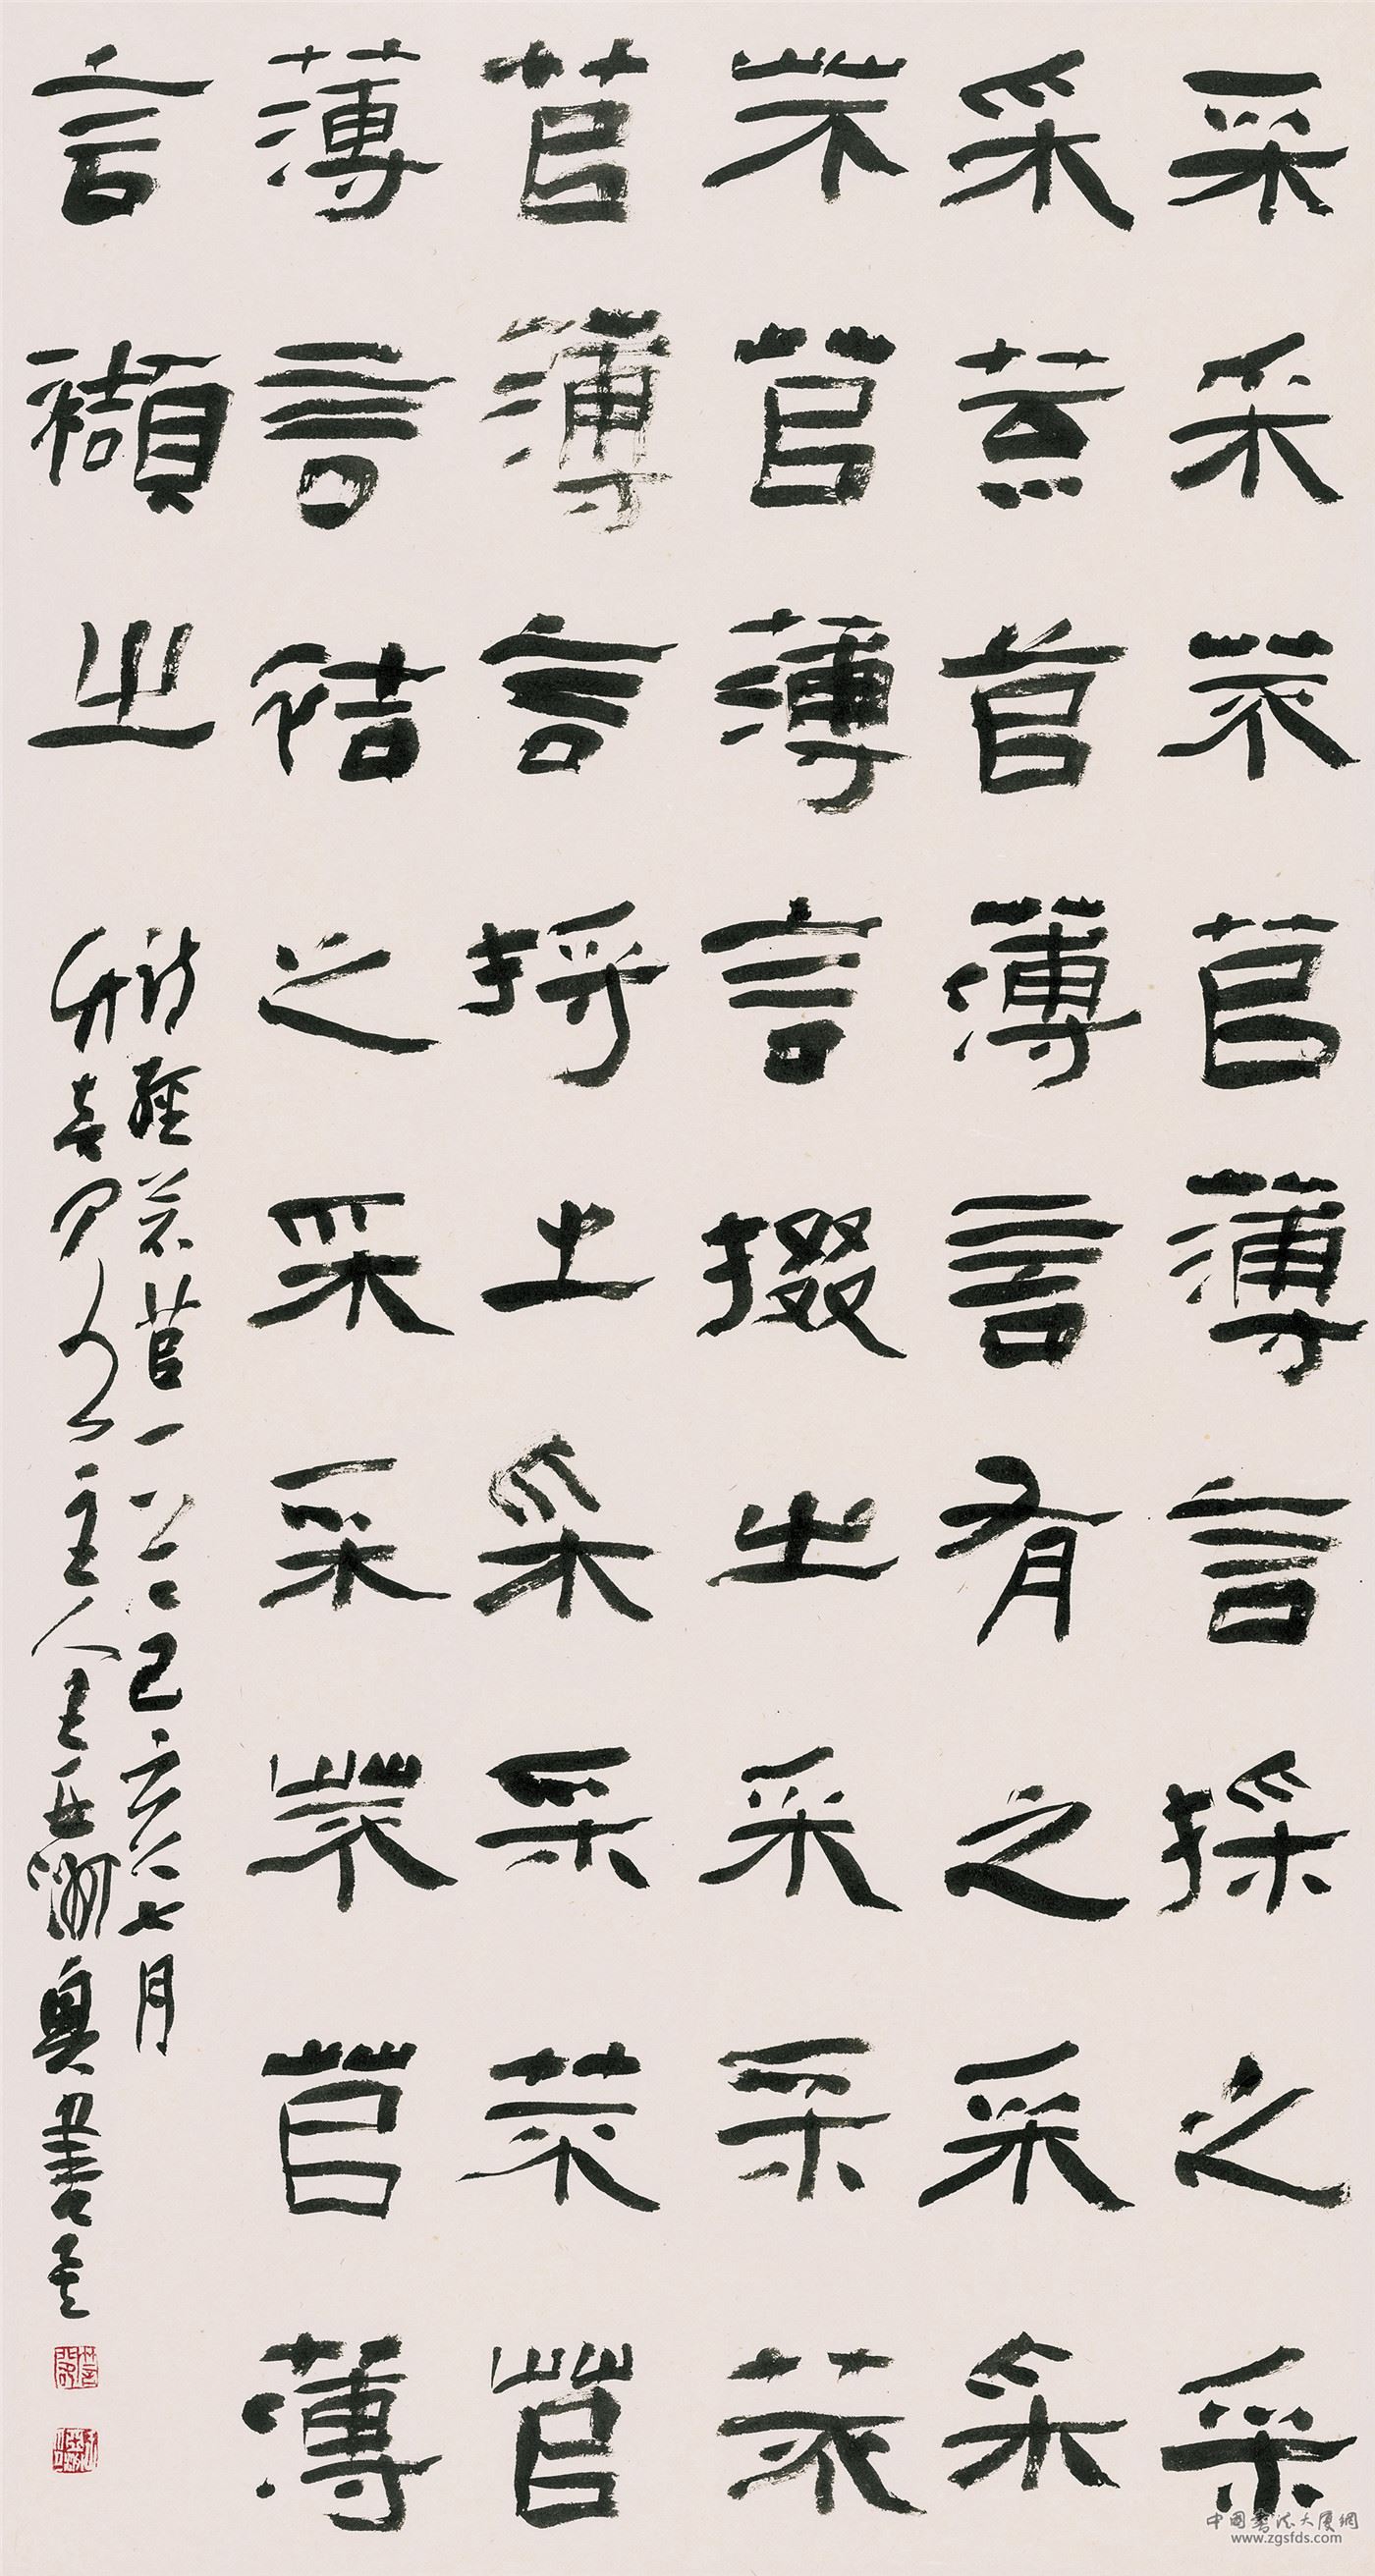 采采芣苢薄言採之采
采芣苢薄言有之采采
芣苢薄言掇之采采芣
苢薄言捋之采采芣苢
薄言袺之采采芣苢薄
言襭之
詩經芣苢一 己亥 七月
主人金 書
中国書法大厦網
www.zgsfds.com